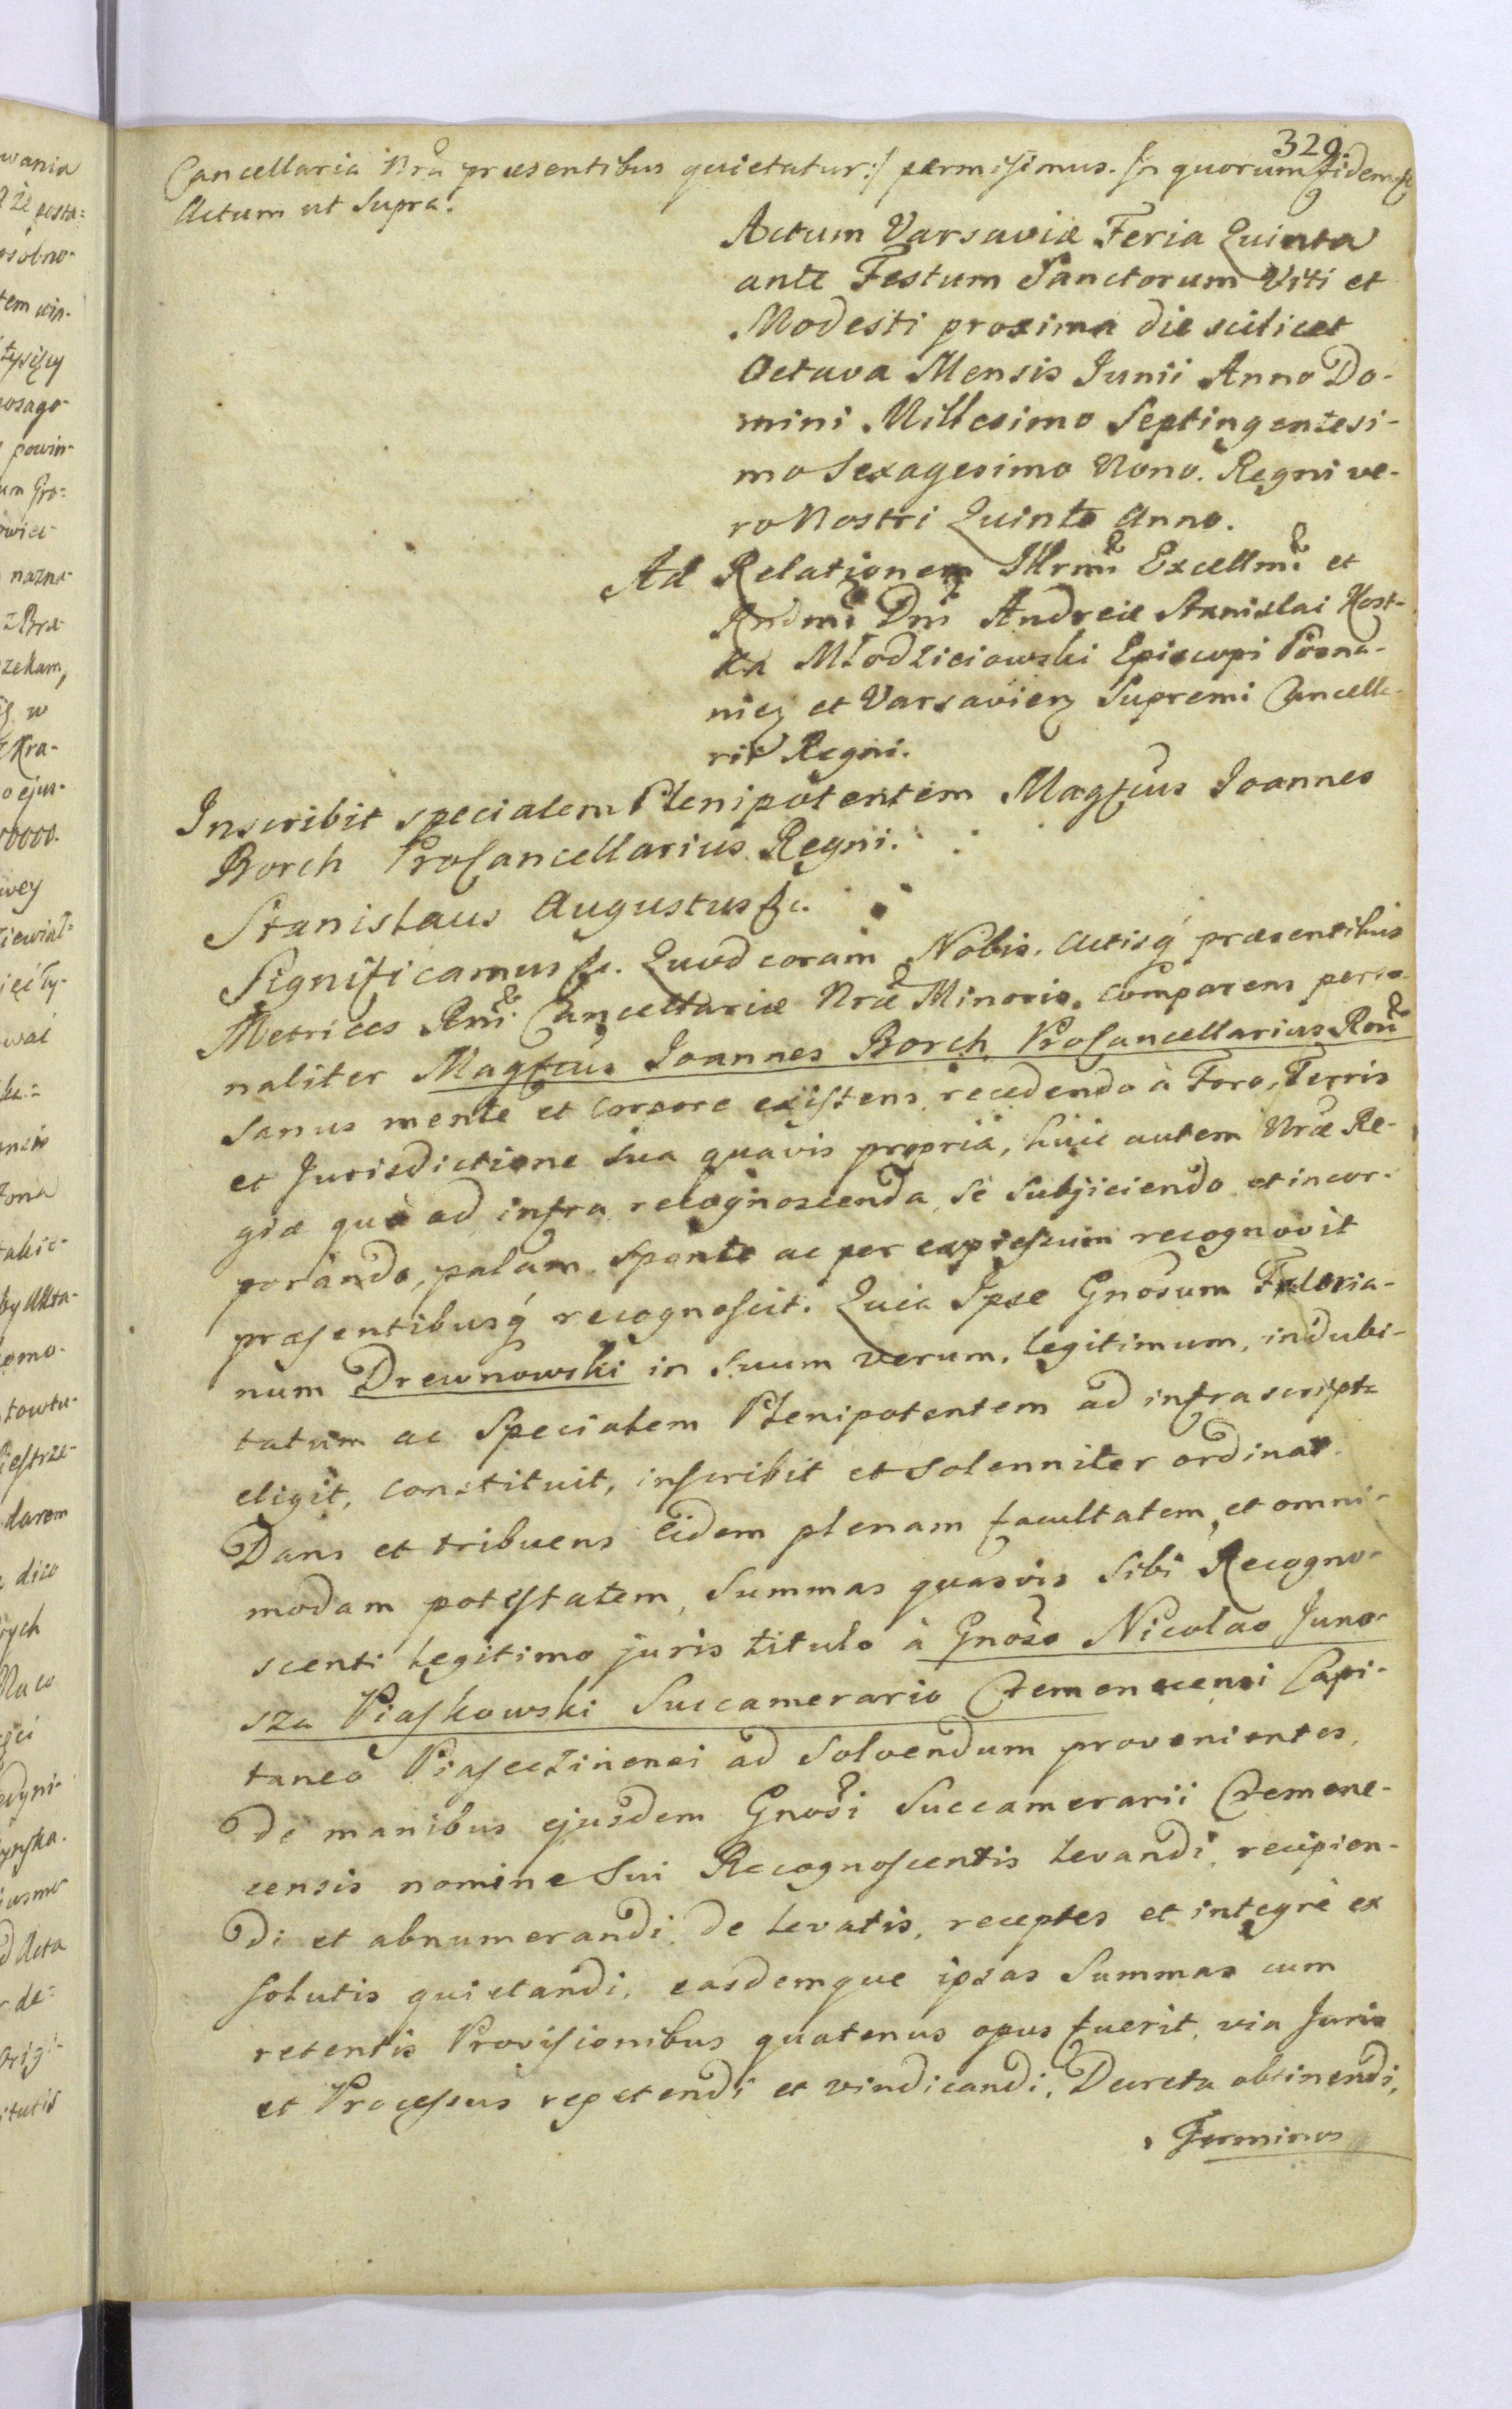 329.
Cancellaria Nrâ præsentibus quietatur:/ permisimus. In quorum fidem &
Actum ut Supra.
Actum Varsaviæ Feria Quinta
ante Festum Sanctorum Viti et
Modesti proxima die scilicet
Octava Mensis Junii Anno Do-
mini Millesimo Septingentesi-
mo Sexagesimo Nono. Regni ve-
ro Nostri Quinto Anno.
Ad Relationem Illrmi Excellmi et
Rndmi Dni Andreæ Stanislai Kost-
ka Młodzieiowski Episcopi Posna-
nien et Varsavien Supremi Cancella-
rii Regni.
Inscribit specialem Plenipotentem Magfcus Joannes
Borch ProCancellarius Regni.
Stanislaus Augustus &c.
Significamus &c. Quod coram Nobis, Actisq́ præsentibus
Metrices Rni Cancellariæ Nræ Minoris, comparens perso-
naliter Magfcus Joannes Borch ProCancellarius Rni
Sanus mente et corpore existens, recedendo à Foro, Terris
et Jurisdictione sua quavis propriâ, huic autem Nræ Re-
giæ quò ad infra recognoscenda, se subjiciendo et incor-
porando, palam sponte ac per expressum recognovit
præsentibusq́ recognoscit. Quia Ipse Gnosum Faloria-
num Drewnowski in Suum verum, legitimum, indubi-
tatum ac Specialem Plenipotentem ad infrascripta
eligit, constituit, inscribit et solenniter ordinat.
Dans et tribuens Eidem plenam facultatem, et omni-
modam potestatem, Summas quasvis Sibi Recogno-
scenti legitimo juris titulo à Gnoso Nicolao Juno-
sza Piaskowski Succamerario Cremenecensi Capi-
taneo Piasectinensi ad solvendum provenientes,
de manibus ejusdem Gnosi Succamerarii Cremene-
censis nomine Sui Recognoscentis levandi, recipien-
di et abnumerandi, de levatis, receptes et integrè ex
solutis quietandi, easdemque ipsas Summas cum
retentis Provisionibus quatenus opus fuerit, via Juris
et Processus repetendi et vindicandi, Decreta obtinendi,
Terminos